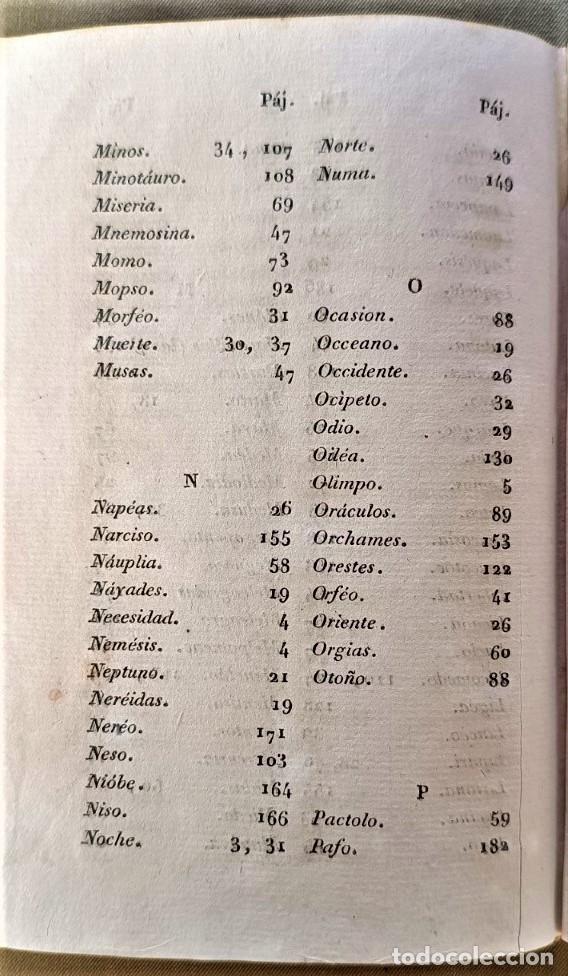 Páj.
Minos. 34, 107
Minotáuro. 108
Miseria. 69
Mnemosina. 47
Momo. 73
Mopso. 92
Morféo. 31
Muerte. 30, 37
Musas. 47
N
Napéas. 26
Narciso. 155
Náuplia. 58
Náyades. 19
Necesidad. 4
Nemésis. 4
Neptuno. 21
Neréidas. 19
Neréo. 171
Neso. 103
Nióbe. 164
Niso. 166
Noche. 3, 31
Páj.
Norte. 26
Numa. 149
O
Ocasion. 88
Occeano. 19
Occidente. 26
Ocìpeto. 32
Odio. 29
Oiléa. 130
Olimpo. 5
Oráculos. 89
Orchames. 153
Orestes. 122
Orféo. 41
Oriente. 26
Orgias. 60
Otoño. 88
P
Pactolo. 59
Pafo. 182
todocoleccion